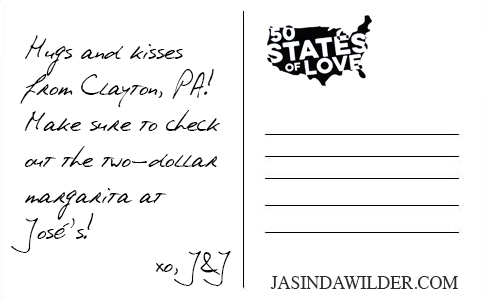 Hugs and kisses
from Clayton, PA!
Make sure to check
out the two-dollar
margarita at
José's!
xo, J&J
50
STATES
OF LOVE
JASINDAWILDER.COM